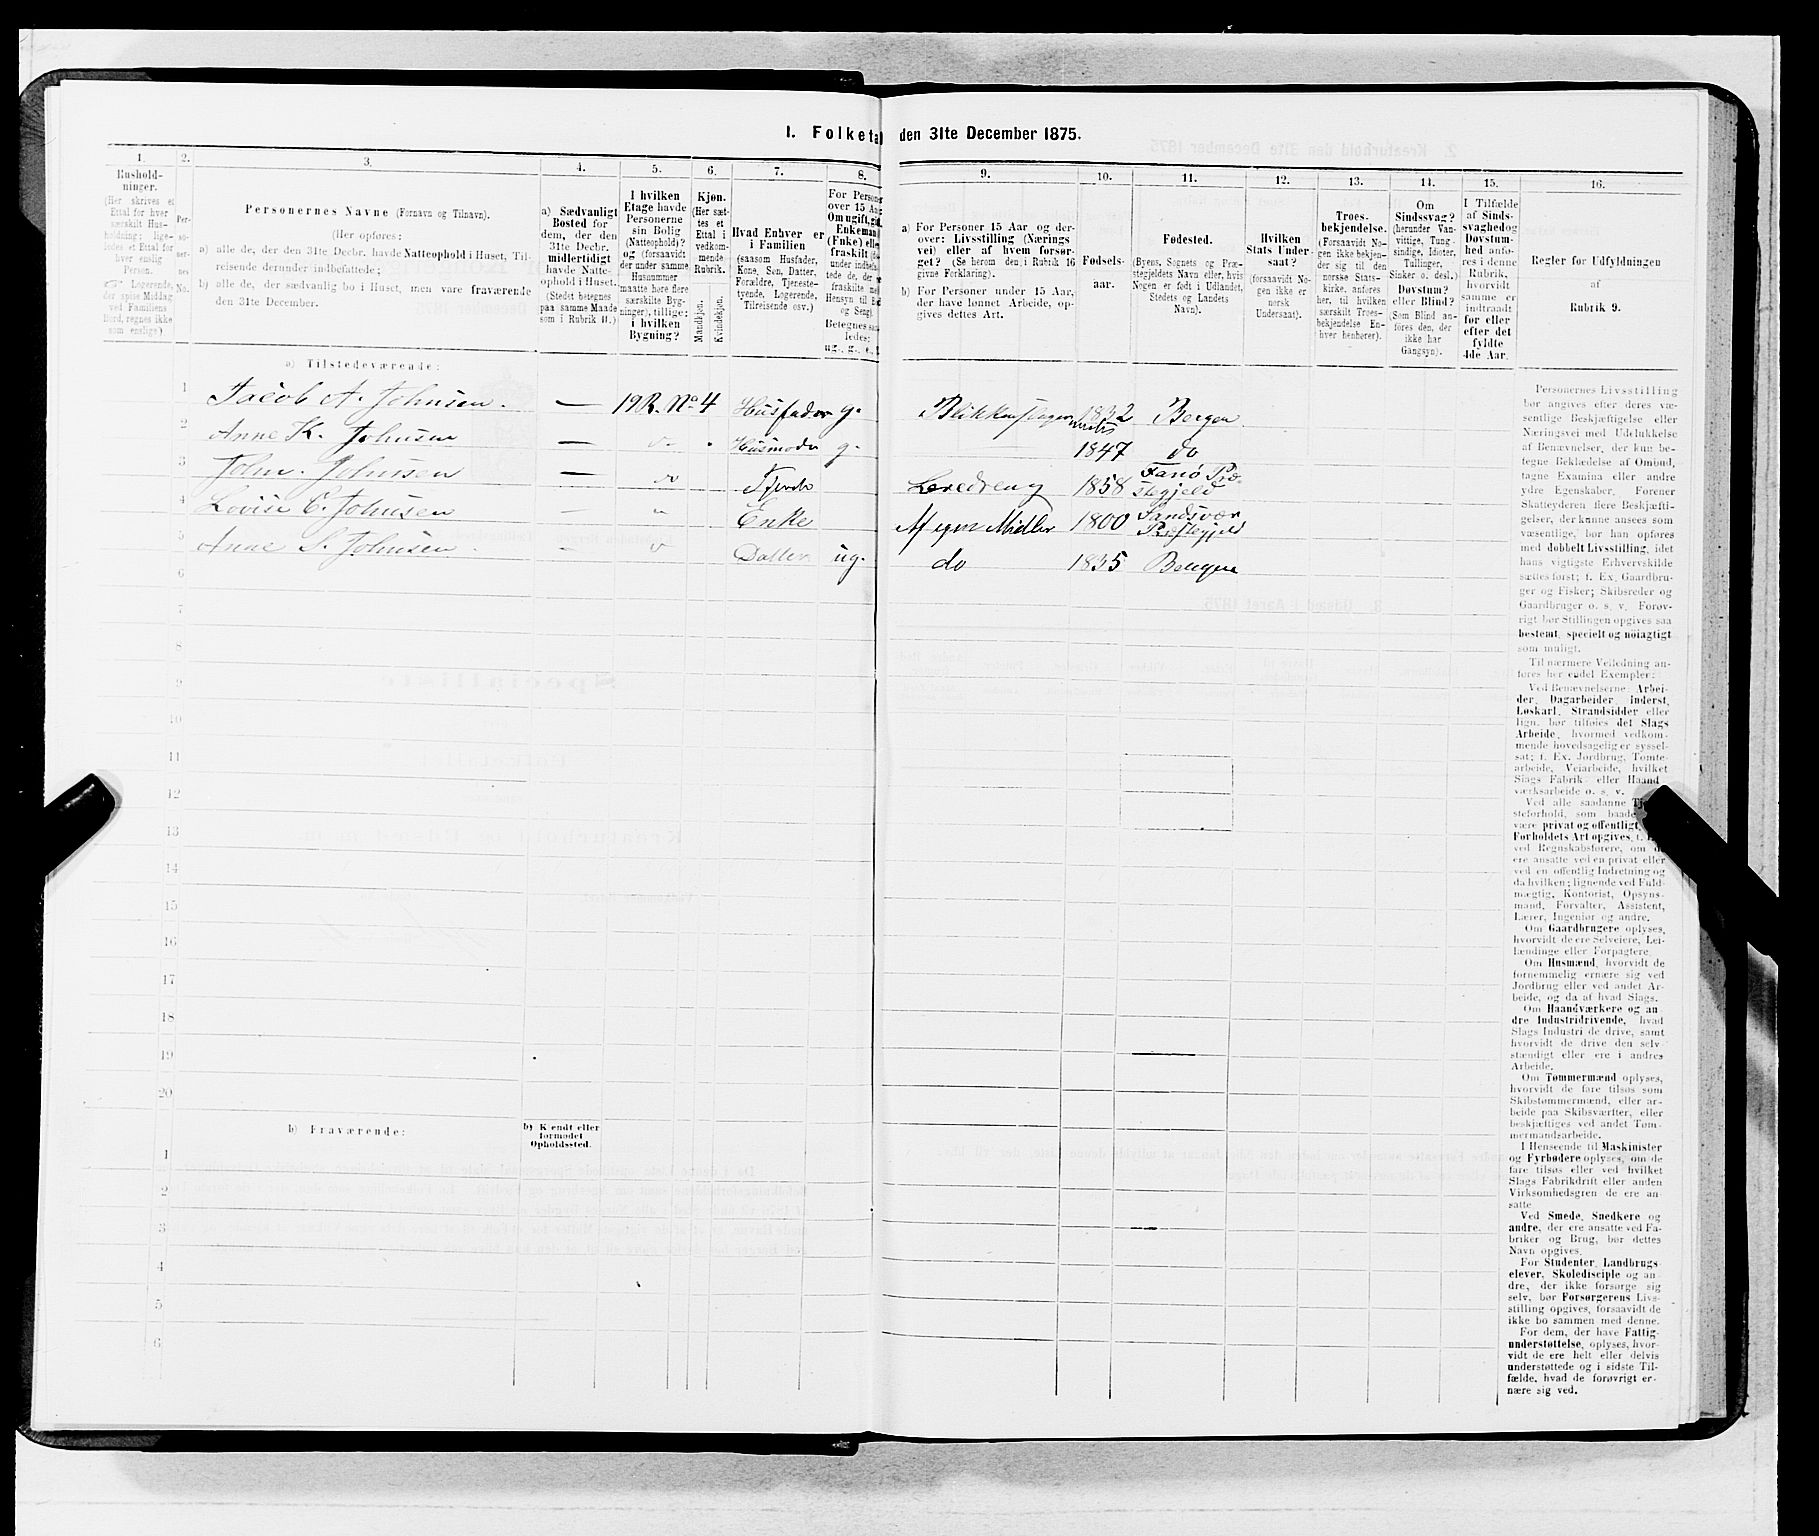 1. Folketal den 31te December 1875.
1.
Husholdninger.
(Her skrives et
Ettal for hver
særskilt Husholdning;
ligeledes et Ettal for
hver enslig
Person.
Logerende,
der spise Middag
ved Familiens
Bord, regnes ikke
som enslige.)
2.
Personernes
No.
3.
Personernes Navne (Fornavn og Tilnavn).
(Her opføres:
a) alle de, der den 31te Decbr. havde Natteophold i Huset, Tilreisende derunder indbefattede;
b) alle de, der sædvanlig bo i Huset, men vare fraværende
den 31te December.
4.
a) Sædvanligt
Bosted for
dem, der den
31te Decbr.
midlertidigt
havde Natteophold i Huset.
(Stedet betegnes
paa samme Maade
som i Rubrik 11.)
5.
I hvilken
Etage havde
Personerne
sin Bolig
(Natteophold)?
og (forsaavidt
der under samme
Husnummer
maatte høre flere
særskilte Bygninger), tillige:
i hvilken
Bygning?
6.
Kjøn.
(Her sættes et
Ettal i
vedkommende
Rubrik.
Mandkjøn.
Kvindekjøn.
7.
Hvad Enhver er
i Familien
(saasom Husfader,
Kone, Søn, Datter,
Forældre, Tjenestetyende, Logerende,
Tilreisende osv.)
8.
For Personer
over 15 Aar:
Om ugift, gift,
Enkemand
(Enke) eller
fraskilt
9.
a) For Personer 15 Aar og derover: Livsstilling (Næringsvei) eller af hvem forsørget? (Se herom den i Rubrik 16
givne Forklaring).
b) For Personer under 15 Aar,
der have lønnet Arbeide, opgives dettes Art.
10.
Fødselsaar.
11.
Fødested.
(Byens, Sognets og Præstegjeldets Navn eller, hvis
Nogen er født i Udlandet,
Stedets og Landets
Navn).
12.
Hvilken
Stats Undersaat?
(forsaavidt Nogen ikke er
norsk
Undersaat).
13.
Troesbekjendelse.
(Forsaavidt Nogen ikke bekjender sig til den
norske Statskirke, anføres
her, til hvilken
særskilt Troesbekjendelse Enhver henhører).
14.
Om
Sindssvag?
(herunder Vanvittige, Tungsindige, Idioter,
Tullinger,
Sinker o. desl.)
Døvstum?
eller Blind?
(Som Blind anføres den, der
ikke har
Gangsyn).
15.
I Tilfælde
af Sindssvaghed og
Døvstumhed anføres i denne
Rubrik,
hvorvidt
samme er
indtraadt
før eller
efter det
fyldte
4de Aar.
16.
Regler for Udfyldningen
af
Rubrik 9.
a) Tilstedeværende:
1 Jacob A. Johnsen. — 19 R. No 4 Husfader g. 1832 Bergen
2 Anne K. Johnsen — Husmoder g. 1847 do
3 John Johnsen — do Læredreng 1858 Fanø Præstegjeld
4 Lovise C. Johnsen — Enke Af egne Midler 1800 Sandsvær Præstegjeld
5 Anne S. Johnsen — Datter ug. do 1835 Bergen
6
7
8
9
10
11
12
13
14
15
16
17
18
19
20
b) Fraværende:
b) Kjendt eller
formodet
Opholdssted.
1
2
3
4
5
6
Personernes Livsstilling
bør angives efter deres væsentlige Beskjæftigelse eller
Næringsvei med Udelukkelse
af Benævnelser, der kun betegne Beklædelse af Ombud,
tagne Examina eller andre
ydre Egenskaber. Forener
Skatteyderen flere Beskjæftigelser, der kunne ansees som
væsentlige, bør han opføres
med dobbelt Livsstilling, idet
hans vigtigste Erhvervskilde
sættes først; f. Ex. Gaardbruger og Fisker; Skibsreder og
Gaardbruger o. s. v. Forøvrigt bør Stillingen opgives saa
bestemt, specielt og nøiagtigt
som muligt.
Til nærmere Veiledning anføres her endel Exempler:
Ved Benævnelserne Arbeider, Dagarbeider, Inderst,
Løskarl, Strandsidder eller
lign. bør tilføies det Slags
Arbeide, hvormed vedkommende hovedsagelig er sysselsat; f. Ex. Jordbrug, Tomtearbeide, Veiarbeide, hvilket
Slags Fabrik- eller Haandværksarbeide o. s. v.
Ved alle saadanne Tjenesteforhold, som baade
være privat og offentligt,
Forholdets Art opgives,
ved Regnskabsførere, om de
ere ansatte ved en privat eller
ved en offentlig Indretning og
da hvilken; lignende ved Fuldmægtig, Kontorist, Opsynsmand, Forvalter, Assistent,
Lærer, Ingeniør og andre.
Om Gaardbrugere oplyses,
hvorvidt de ere Selveiere, Leilændinge eller Forpagtere.
Om Husmænd, hvorvidt de
fornemmelig ernære sig ved
Jordbrug eller ved andet Arbeide, og da af hvad Slags.
Om Haandværkere og andre Industridrivende, hvad
Slags Industri de drive, samt
hvorvidt de drive den selvstændigt eller ere i andres
Arbeide.
Om Tømmermænd oplyses,
hvorvidt de fare tilsøs som
Skibstømmermænd, eller arbeide paa Skibsværfter, eller
beskjæftiges ved andet Tømmermandsarbeide.
I Henseende til Maskinister
og Fyrbødere oplyses, om de
fare tilsøs eller ved hvilket
Slags Fabrikdrift eller anden
Virksomhedsgren de ere ansatte
Ved Smede, Snedkere og
andre, der ere ansatte ved Fabriker og Brug, bør dettes
Navn opgives.
For Studenter, Landbrugselever, Skoledisciple og andre, der ikke forsørge sig
selv, bør Forsørgerens Livsstilling opgives, forsaavidt de
ikke bo sammen med denne.
For dem, der have Fattigunderstøttelse, oplyses, hvorvidt de ere helt eller delvis
understøttede og i sidste Tilfælde, hvad de forøvrigt ernære sig ved.